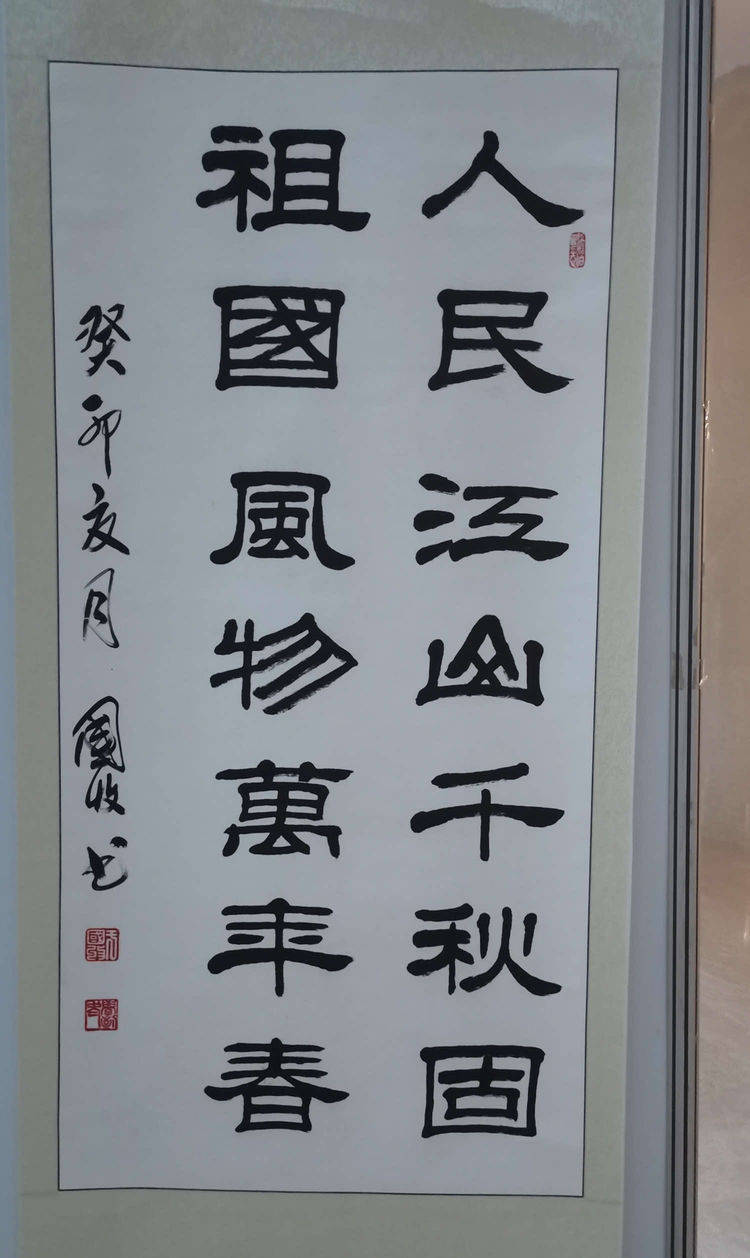 人民江山千秋固
祖國風物萬年春
癸卯亥月 國收书